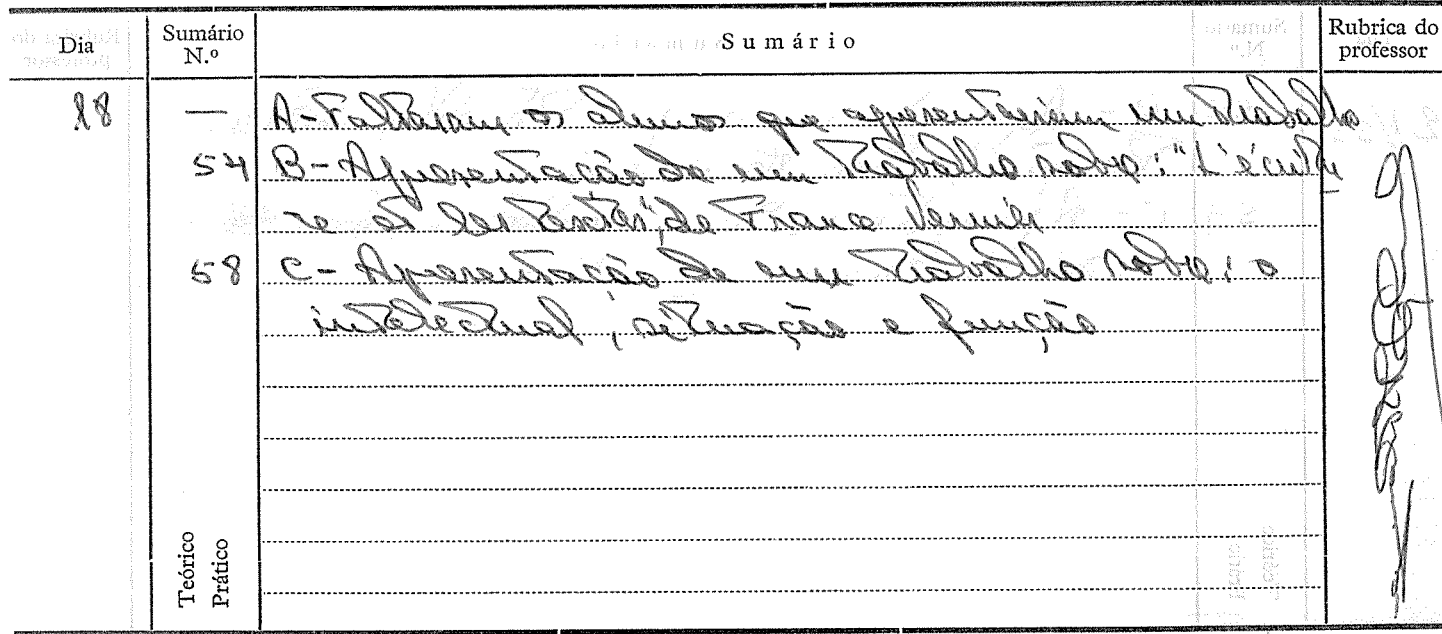 Dia Sumário N.º Sumário Rubrica do professor
18 — A - Faltaram os alunos que apresentariam um trabalho
54 B - Apresentação de um trabalho sobre: "L'écritu
re et les textes", de France Vernier
58 C - Apresentação de um trabalho sobre: o
intelectual, situação e função
Teórico
Prático